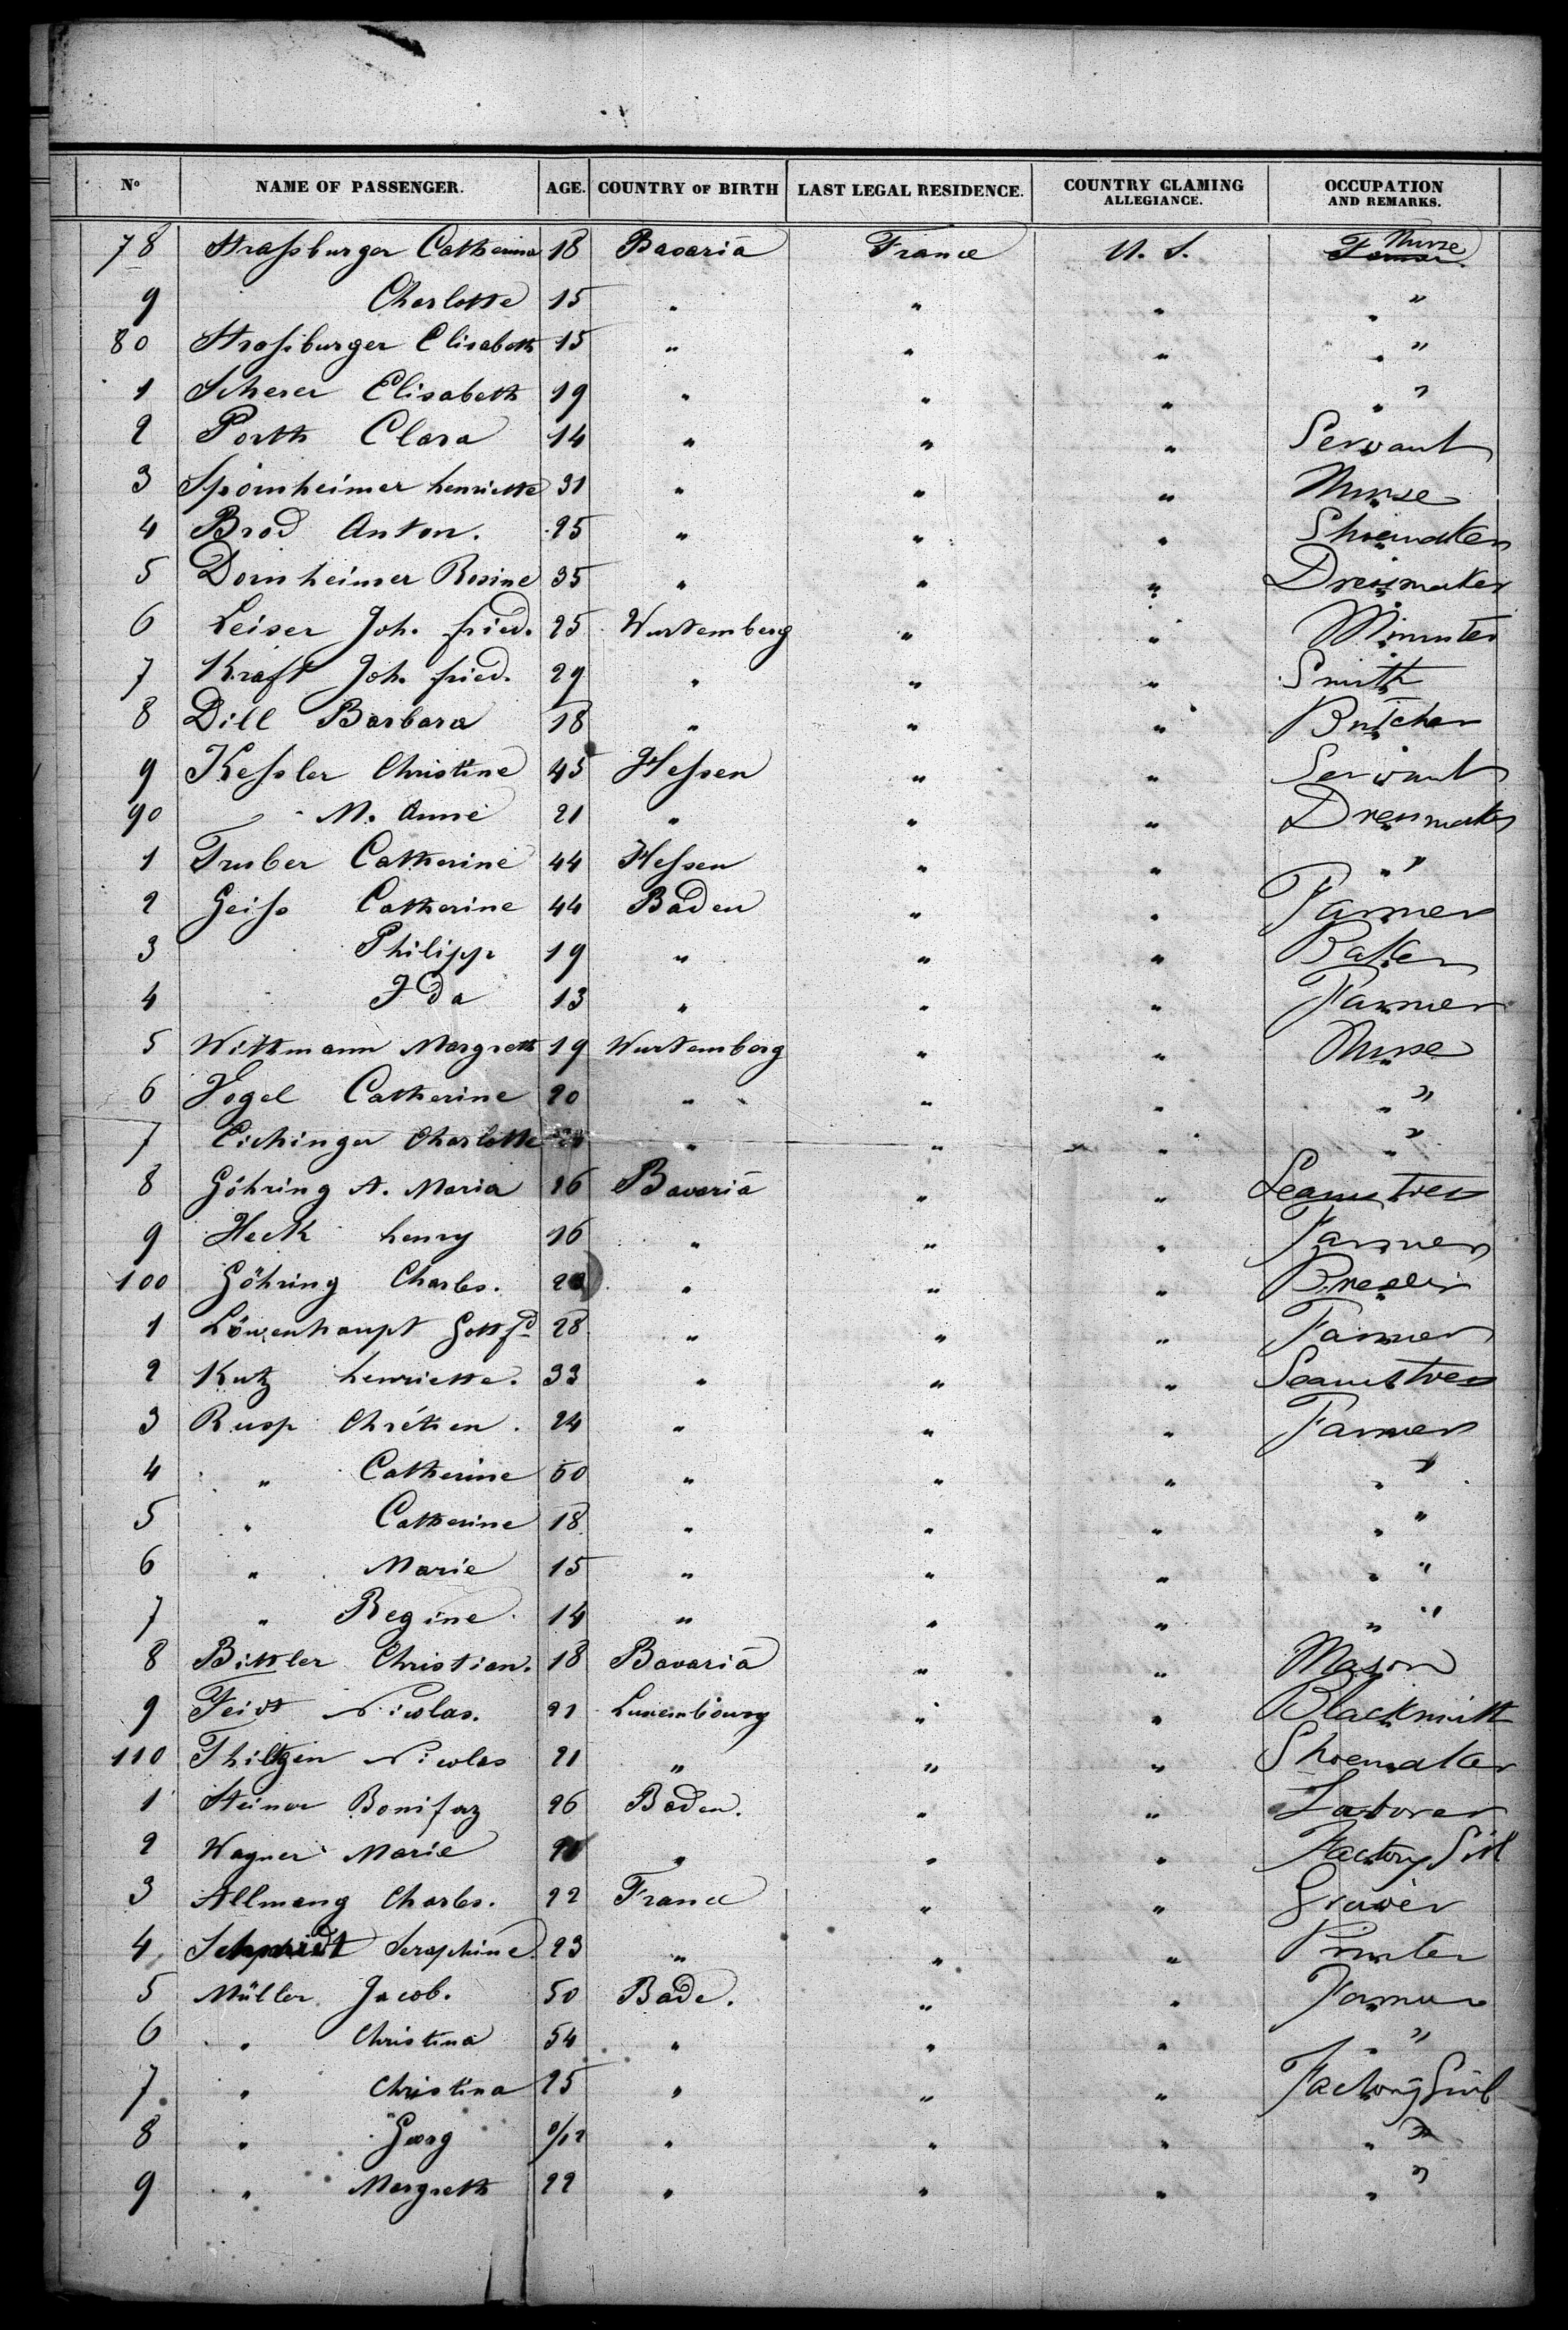 No NAME OF PASSENGER. AGE. COUNTRY OF BIRTH LAST LEGAL RESIDENCE. COUNTRY CLAMING ALLEGIANCE. OCCUPATION AND REMARKS.
78 Straſsburger Catherina 18 Bavaria France U. S. Nurse
9 Charlotte 15 " " " " "
80 Straſsburger Elisabeth 15 " " " " "
1 Scherer Elisabeth 19 " " " " "
2 Porth Clara 14 " " " Servant
3 Spörnheimer henriette 31 " " " Nurse
4 Brod Anton. 25 " " " Shoemaker
5 Dornheimer Rosine 35 " " " Dressmaker
6 Leiser Joh. fried. 25 Wurtemberg " "
7 Kraft Joh. fried. 29 " " " Smith
8 Dill Barbara 18 " " " Butcher
9 Keſsler Christine 45 Heſsen " " Servant
90 M. Anne 21 " " " Dressmaker
1 Truber Catherine 44 Heſsen " " " "
2 Geiſs Catherine 44 Baden " " Farmer
3 Philipp 19 " " " Baker
4 Ida 13 " " " Farmer
5 Wittmann Margreth 19 Wurtemberg " " Nurse
6 Vogel Catherine 20 " " " " "
7 Eichinger Charlotte " " " " "
8 Göhring A. Maria 26 Bavaria " " Seamstress
9 Heck henry 16 " " " Farmer
100 Göhring Charles. " " "
1 Löwenhaupt Gottfd 28 " " " Farmer
2 Kutz henriette. 33 " " " Seamstress
3 Rusp Chrétien. 24 " " " Farmer
4 " Catherine 50 " " " " "
5 " Catherine 18 " " " " "
6 " Marie 15 " " " " "
7 " Regine 14 " " " " "
8 Bittler Christian. 18 Bavaria " " Mason
9 Feidt Nicolas. 21 Luxembourg " " Blacksmith
110 Thiltgen Nicolas 21 " " " Shoemaker
1 Steiner Bonifaz 26 Baden. " " Laborer
2 Wagner Marie " " " Factory Girl
3 Allmang Charles. 22 France " "
4 Schmidt Seraphine 23 " " " Printer
5 Müller Jacob. 50 Bade. " " Farmer
6 " Christina 54 " " " " "
7 " Christina 25 " " " Factory Girl
8 " Georg " " " " "
9 " Margreth 22 " " " " "